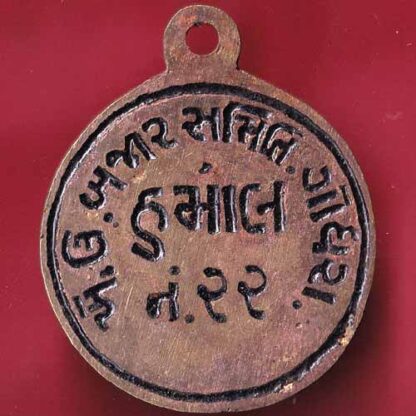 ખે. ઉ. બજાર સમિતિ. ગોધરા.
હમાલ
નં. ૨૨